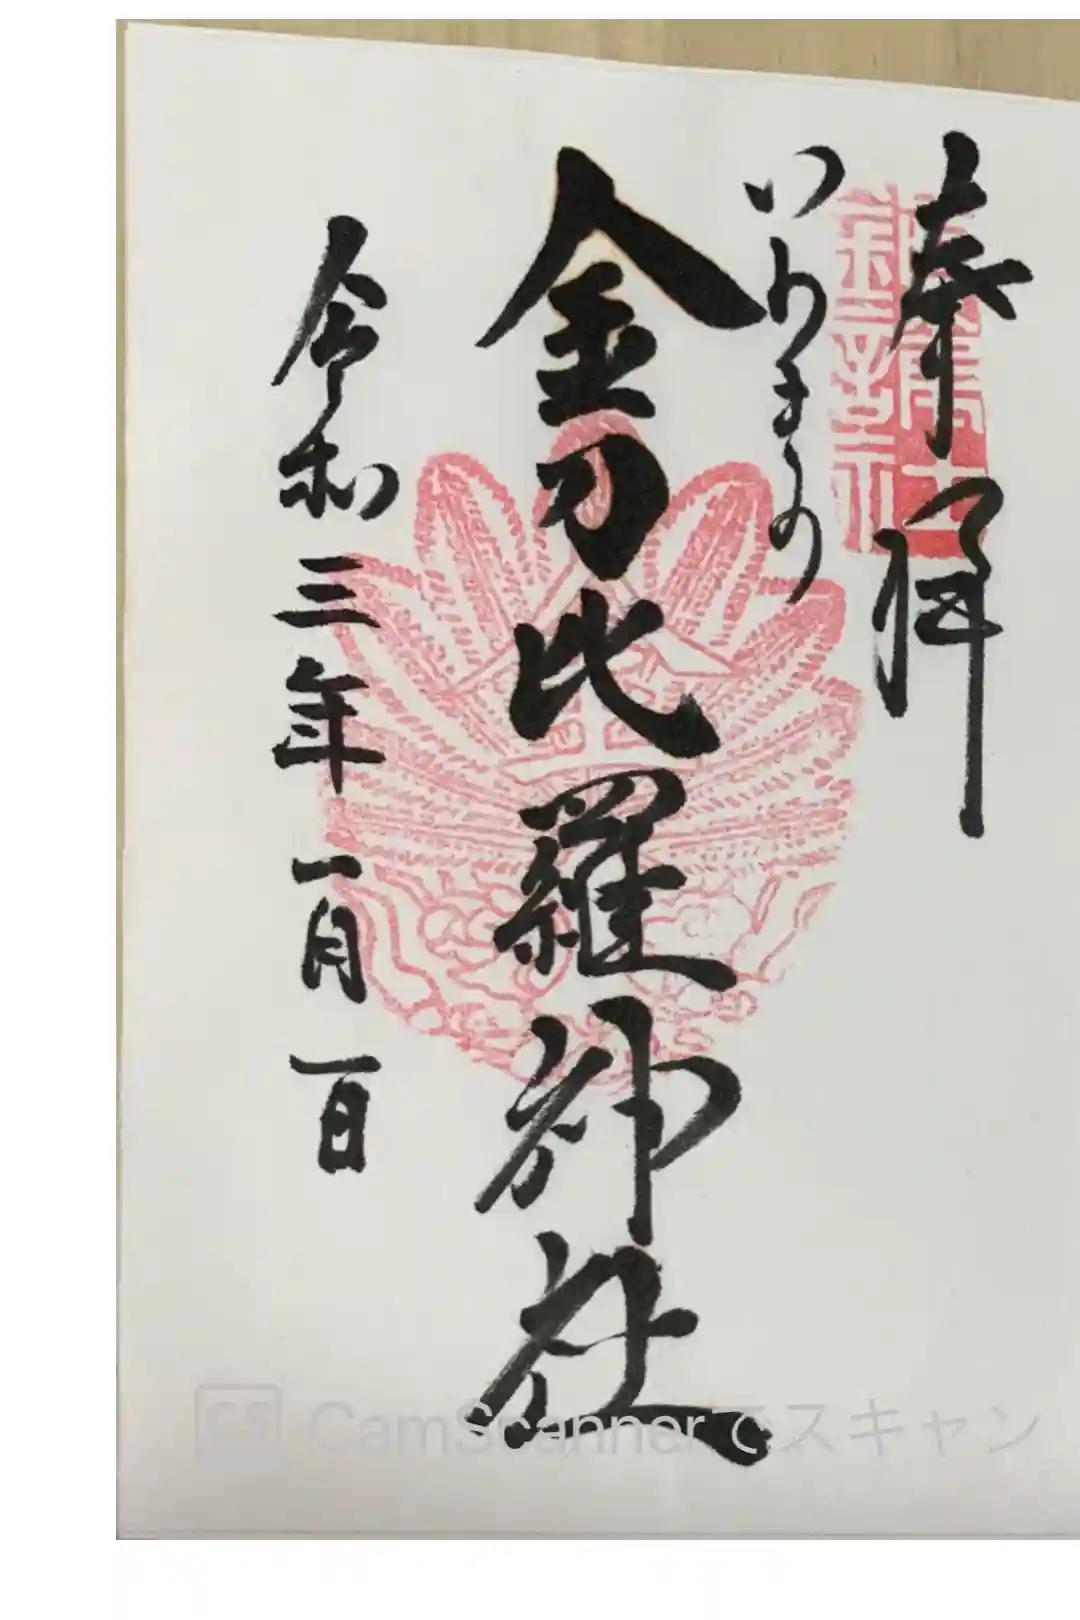 奉拝
いりまうの
金刀比羅神社
令和三年一月一日
CS CamScannerでスキャン